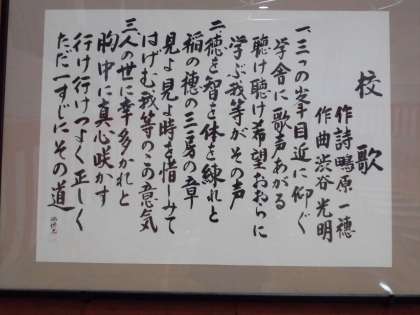 校歌
作詩 鴫原一穂
作曲 渋谷光明
一、三つの峯目近に仰ぐ
学舎に歌声あがる
聴け聴け希望おおらに
学ぶ我等がその声
二、徳を智を体を練れと
稲の穂の三房の章
見よ見よ時を惜しみて
はげむ我等のこの意気
三、人の世に幸多かれと
胸中に真心咲かす
行け行けつよく正しく
ただ一すじにその道